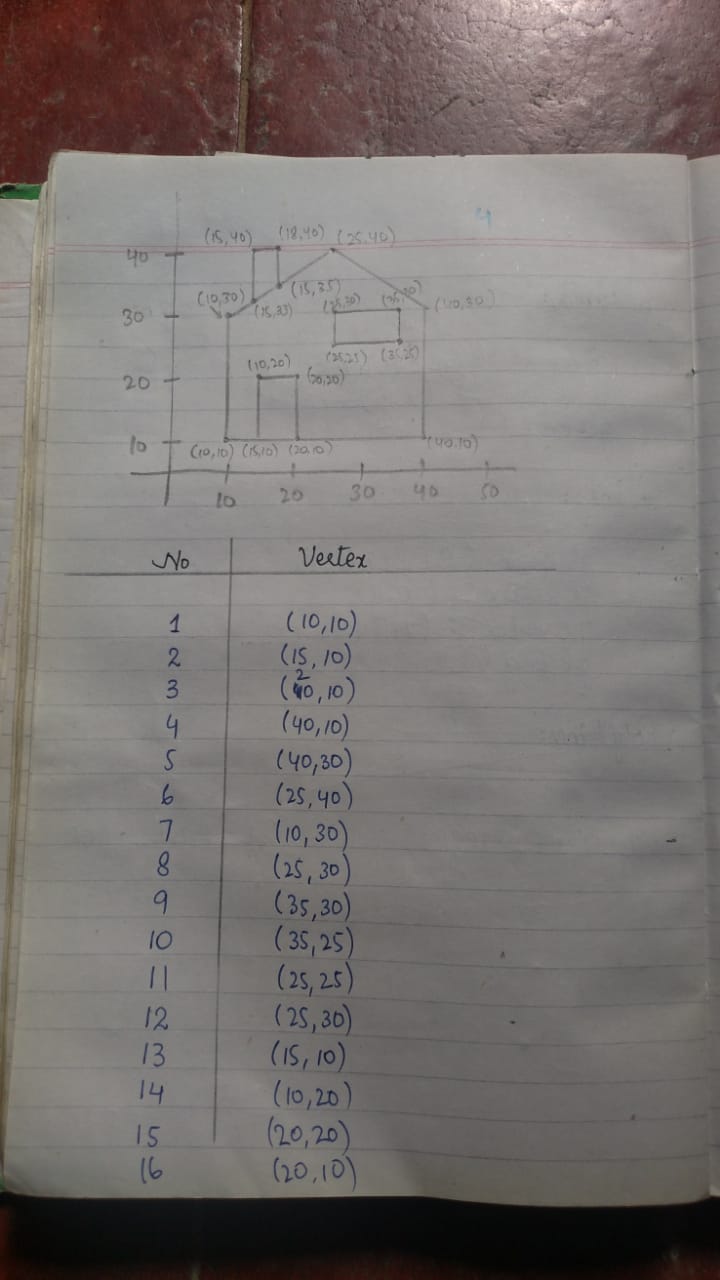 4
(15,40) (18,40) (25,40)
40
(10,30) (15,35) (25,30) (35,30) (40,30)
30 (15,33)
(10,20) (25,25) (35,25)
20 (20,20)
10 (10,10) (15,10) (20,10) (40,10)
10 20 30 40 50
No Vertex
1 (10,10)
2 (15,10)
3 (20,10)
4 (40,10)
5 (40,30)
6 (25,40)
7 (10,30)
8 (25,30)
9 (35,30)
10 (35,25)
11 (25,25)
12 (25,30)
13 (15,10)
14 (10,20)
15 (20,20)
16 (20,10)